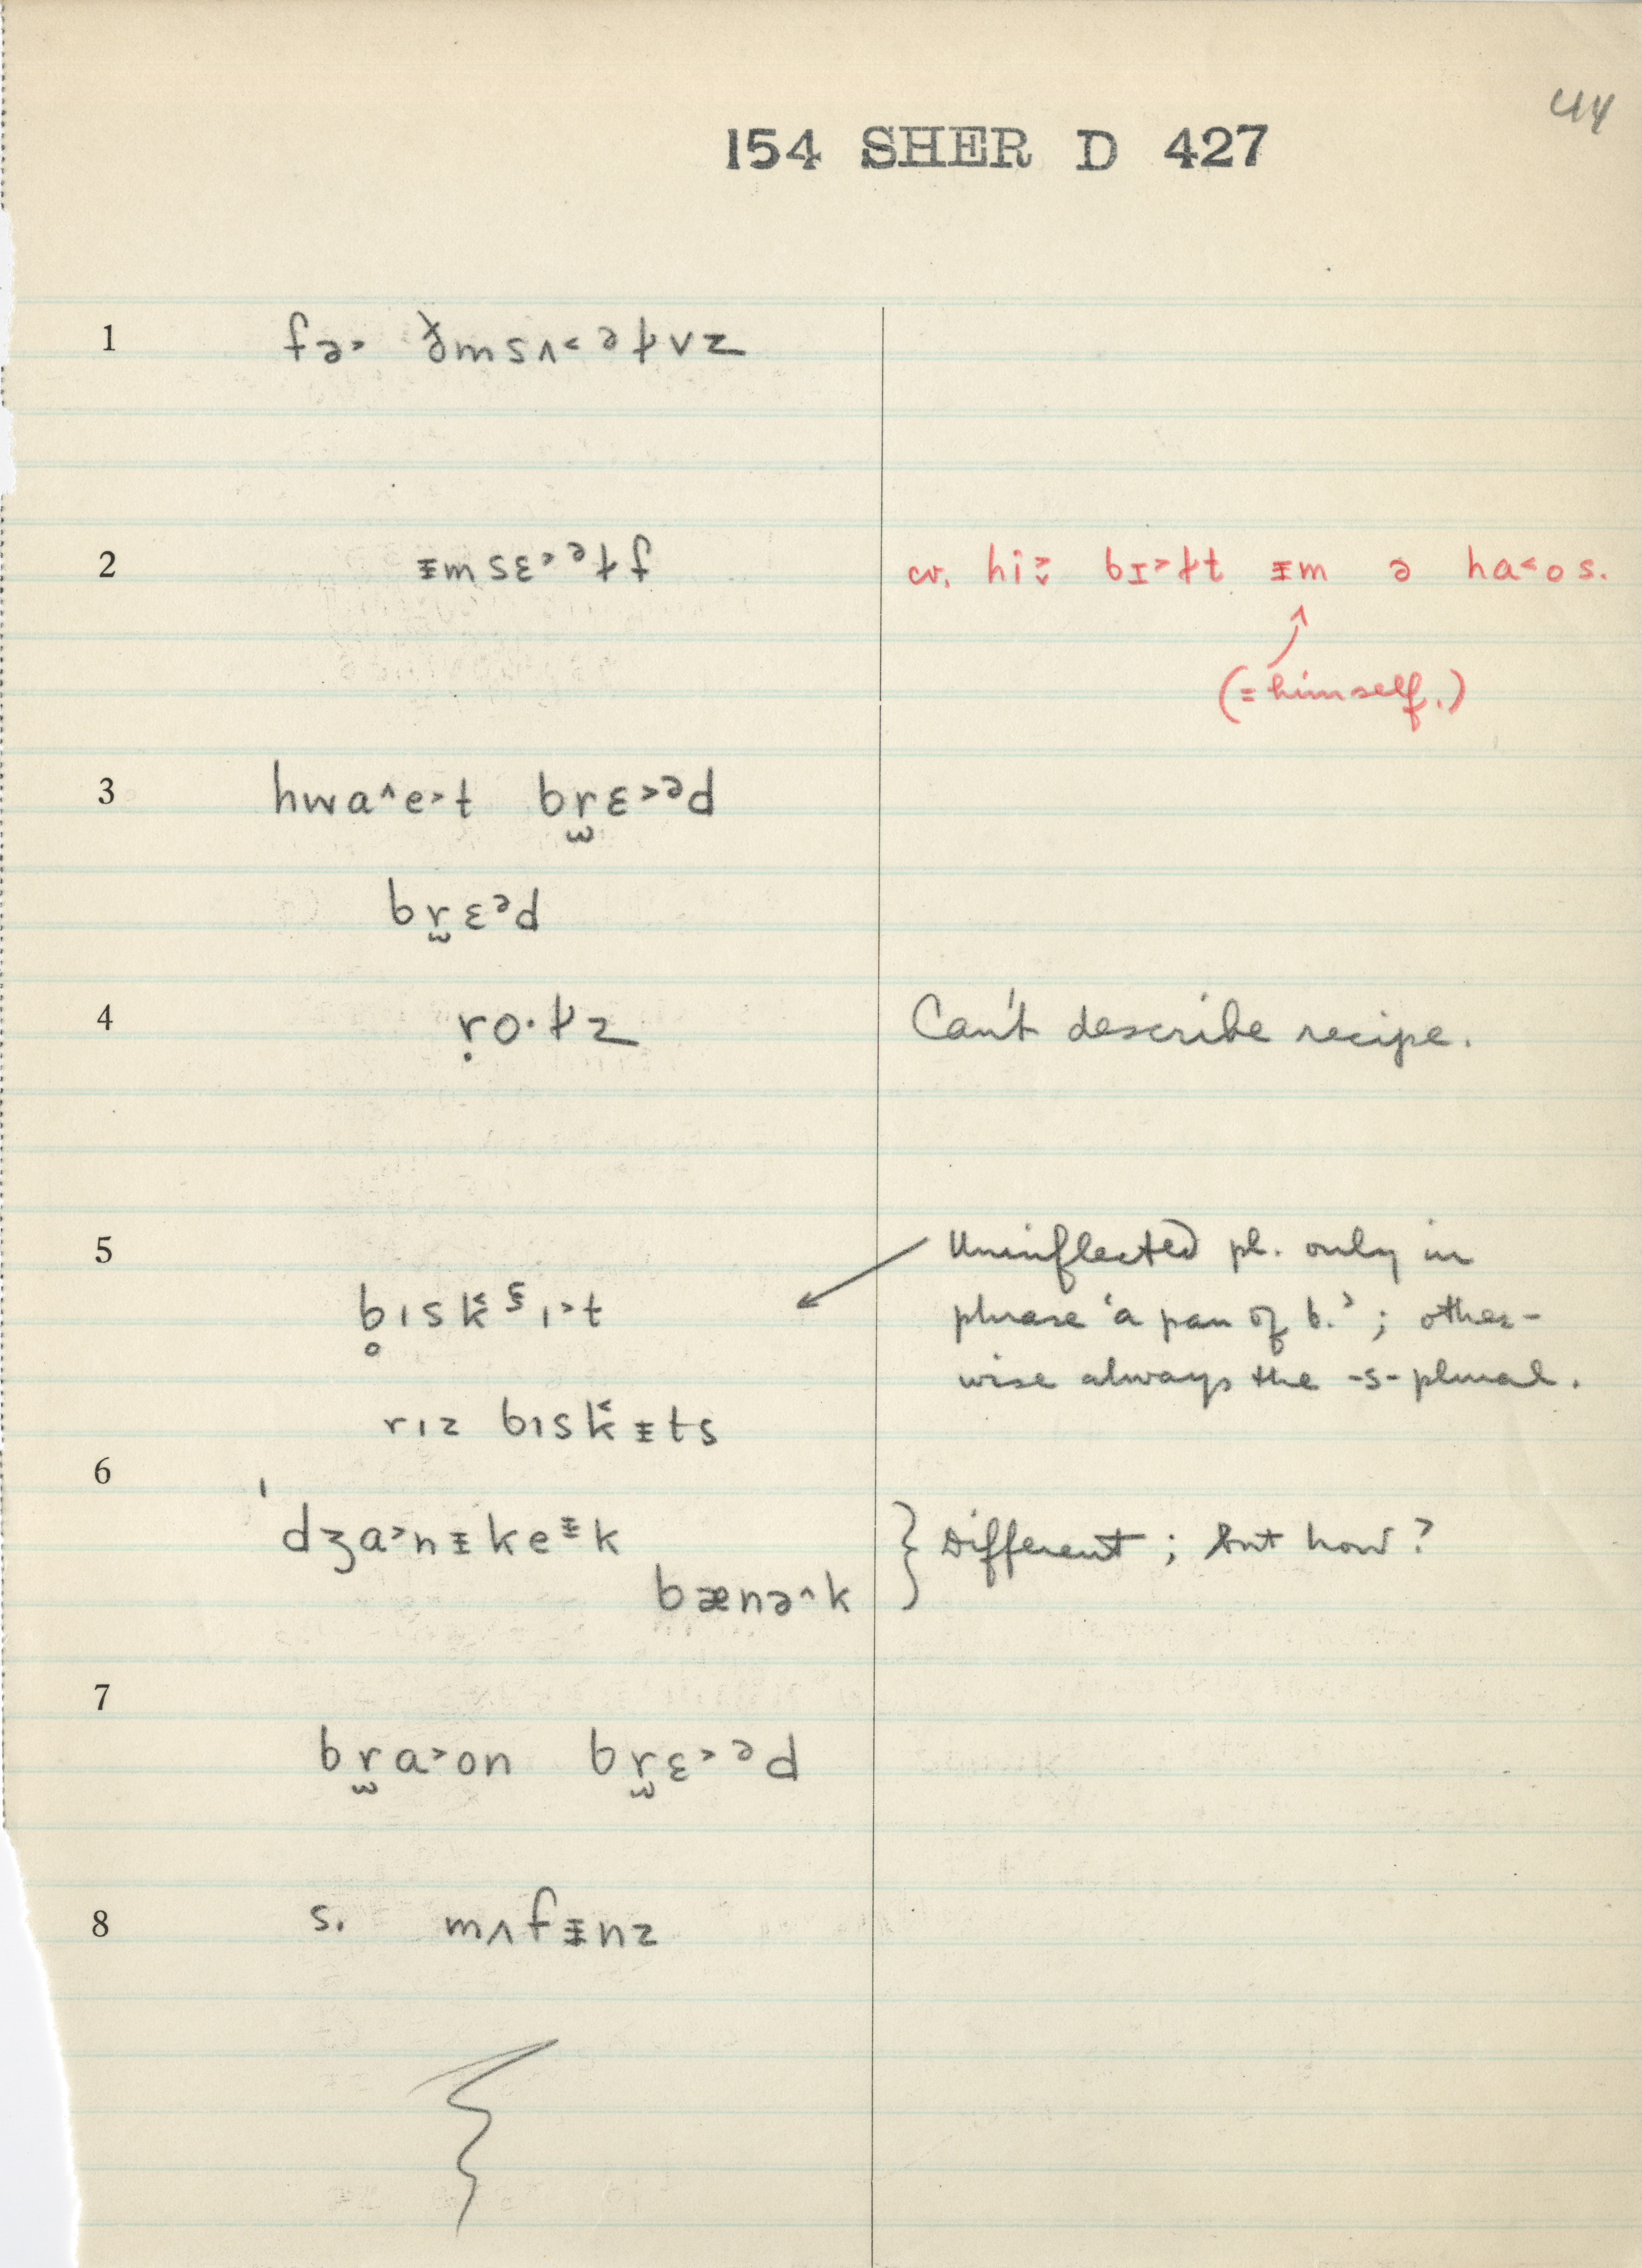 44
154 SHER D 427
1 fə˃ ð̣msʌ˂əɫvz
2 ᵻmsɛ˃ᵊɫf cv. hi˃̬ bɪ˃ɫt ᵻm ə ha˂os.
(= himself.)
3 hwa^e˃t br̫ɛ˃ᵊd
br̫ɛᵊd
4 ṛo·ɫz Can't describe recipe.
5 Uninflected pl. only in
b̥ɪsk̬ɪ˃t phrase 'a pan of b.'; other-
wise always the -s- plural.
rɪz bɪsk˂ᵻts
6
ˈdʒa˃nᵻkeᵻk } Different; but how?
bænə^k
7
br̫a˃on br̫ɛ˃ᵊd
8 s. mʌfᵻnz